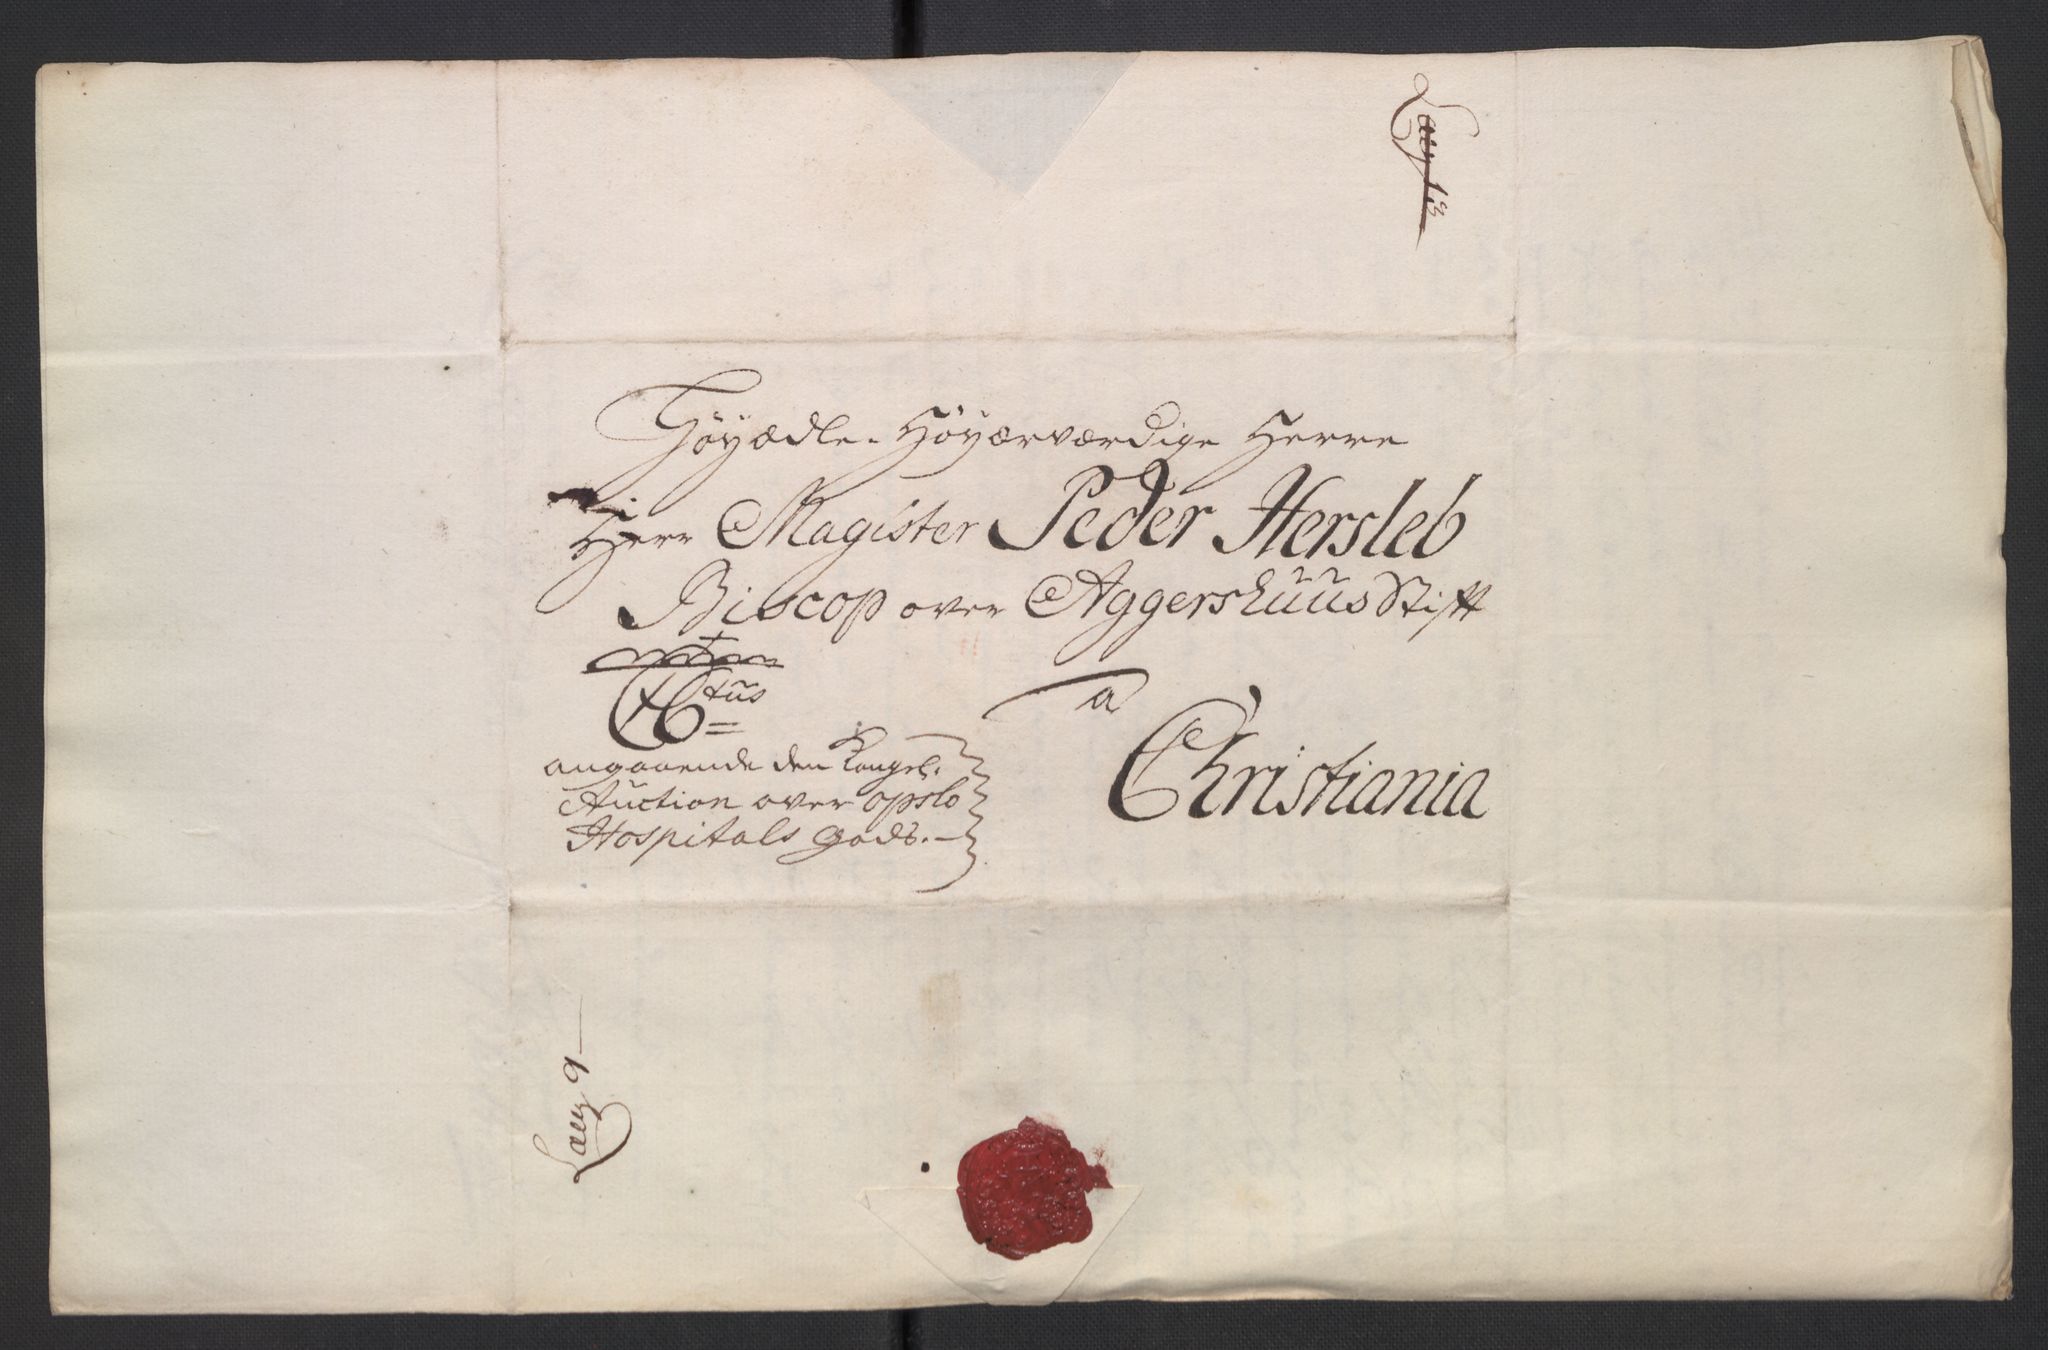 Höyædle. Höyærværdige Herre
Herr Magister Peder Hersleb
Biscop over Aggershuus Stift
a
Christiania
angaaende den Kongel.
Auction over Opslo
Hospitals Gods.
Læg 13
Læg 9